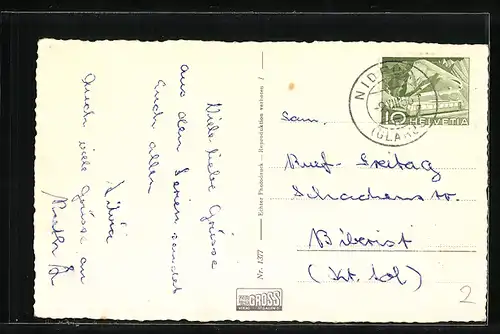 Viele liebe Grüsse
aus den Ferien sendet
Euch allen
Silvia
Auch viele Grüsse an
Ruth
Nr. 1377 — Echter Photodruck — Reproduktion verboten /
GROSS
NID
(GLARUS)
10 HELVETIA
Fam.
Ruef-Freitag
Schachenstr.
Biberist
(Kt. Sol)
2